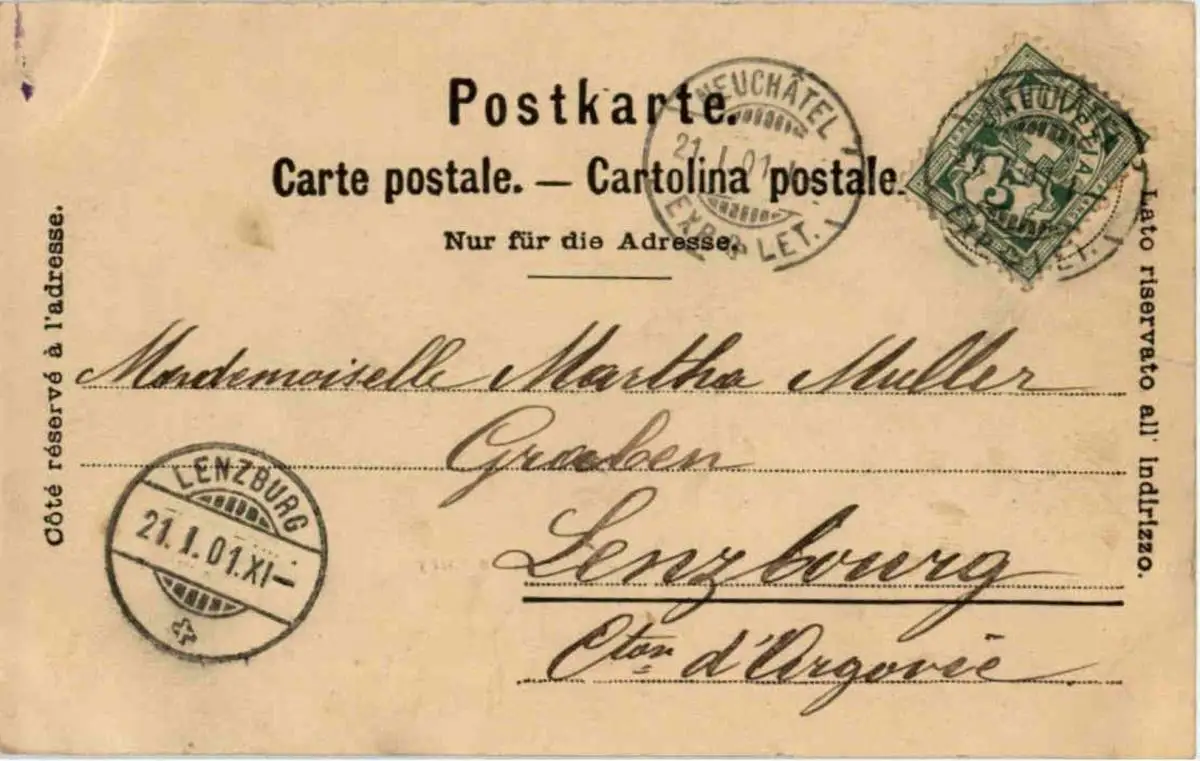 Postkarte.
Carte postale. — Cartolina postale.
Nur für die Adresse.
NEUCHÂTEL
21. I. 01
EXP. LET.
NEUCHÂTEL
EXP. LET.
5
Côté réservé à l'adresse.
Lato riservato all' indirizzo.
Mademoiselle Martha Muller
Graben
Lenzbourg
Cton d'Argovie
LENZBURG
21. I. 01. XI–